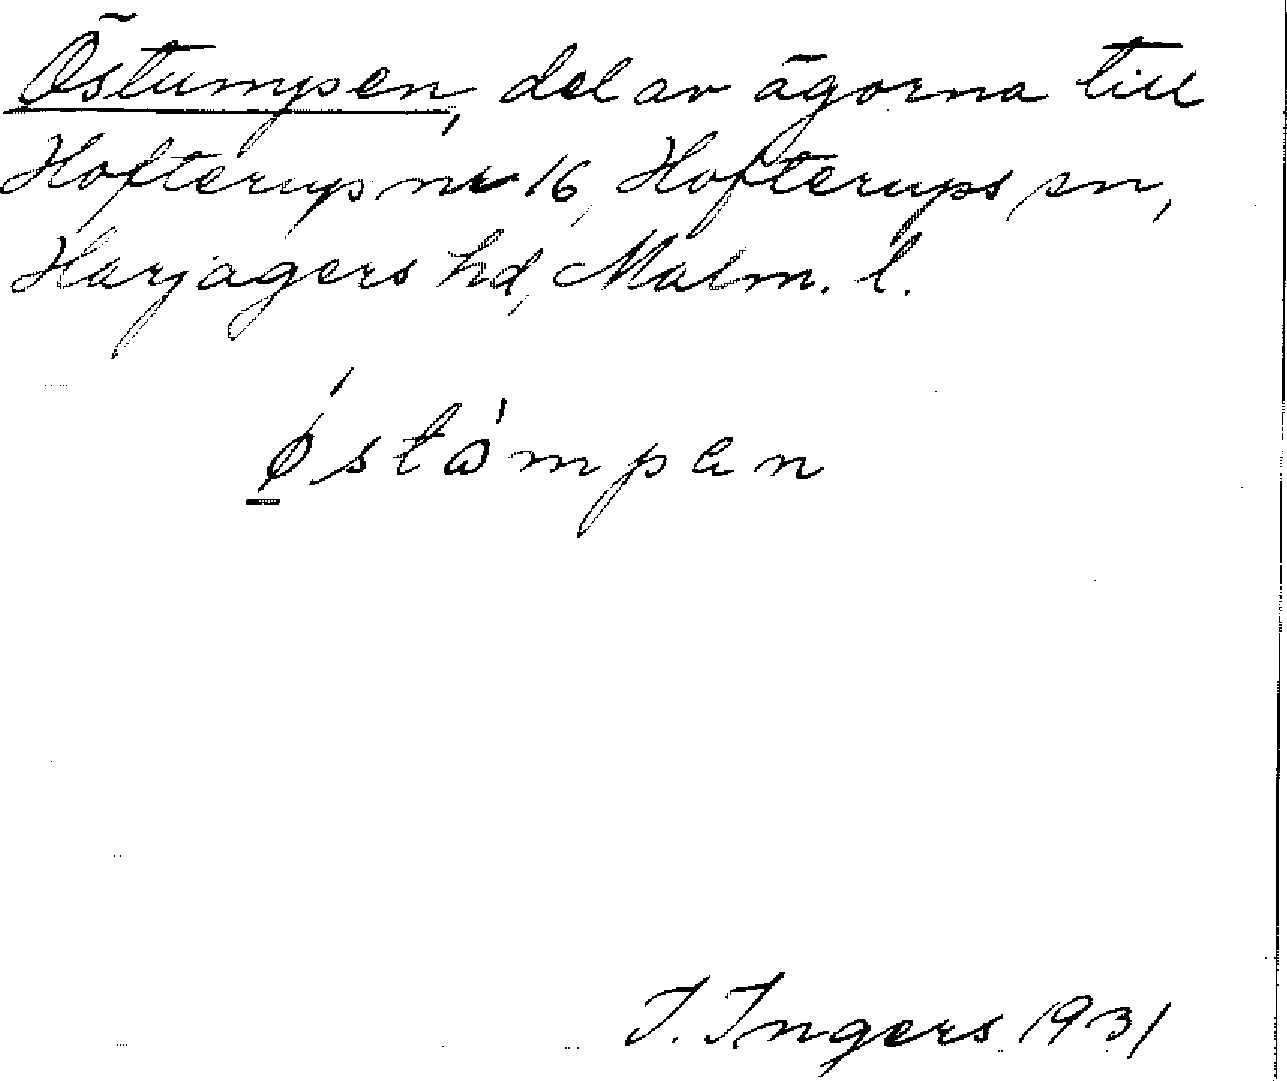 Östumpen, del av ägorna till
Hofterup nr 16, Hofterups sn,
Harjagers hd, Malm. l.
ǿstómpen
I. Ingers 1931